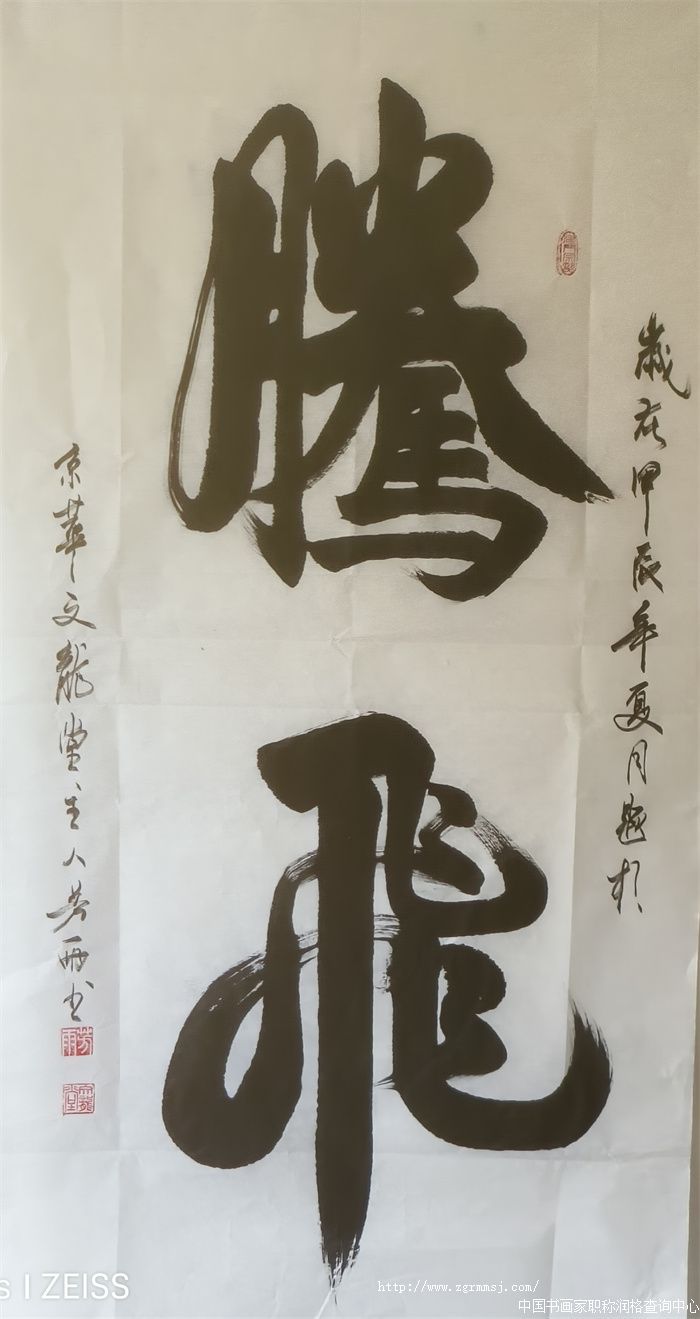 騰飛
歲在甲辰年夏月題於
京華文龍堂主人芳雨书
芳雨
s | ZEISS
http://www.zgrmmsj.com/
中国书画家职称润格查询中心